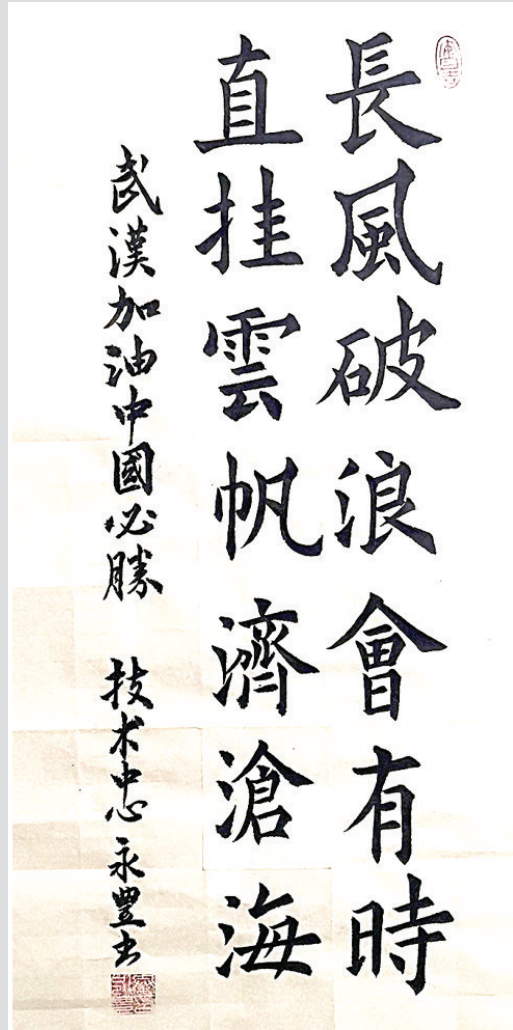 長風破浪會有時
直挂雲帆濟滄海
武漢加油中國必勝 技术中心永豐书